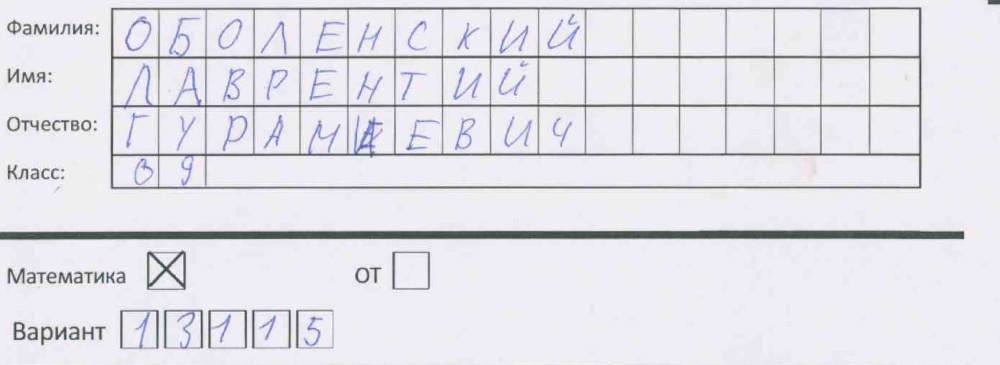 Фамилия: ОБОЛЕНСКИЙ
Имя: ЛАВРЕНТИЙ
Отчество:
Класс: 09
Математика ОТ
Вариант 13115